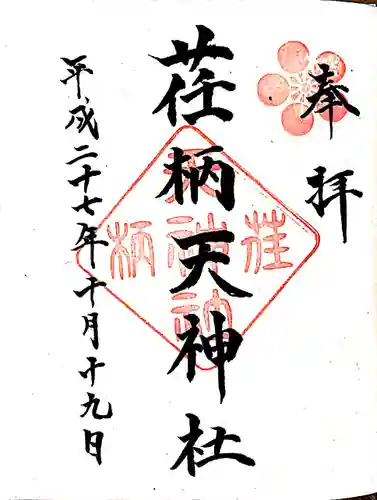 奉拝
荏柄天神社
平成二十七年十月十九日
荏
柄
天
神
社